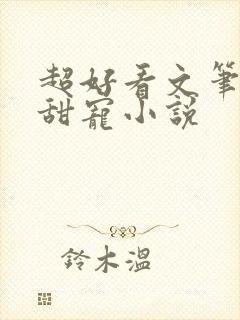 超好看文筆
甜寵小說
鈴木溫